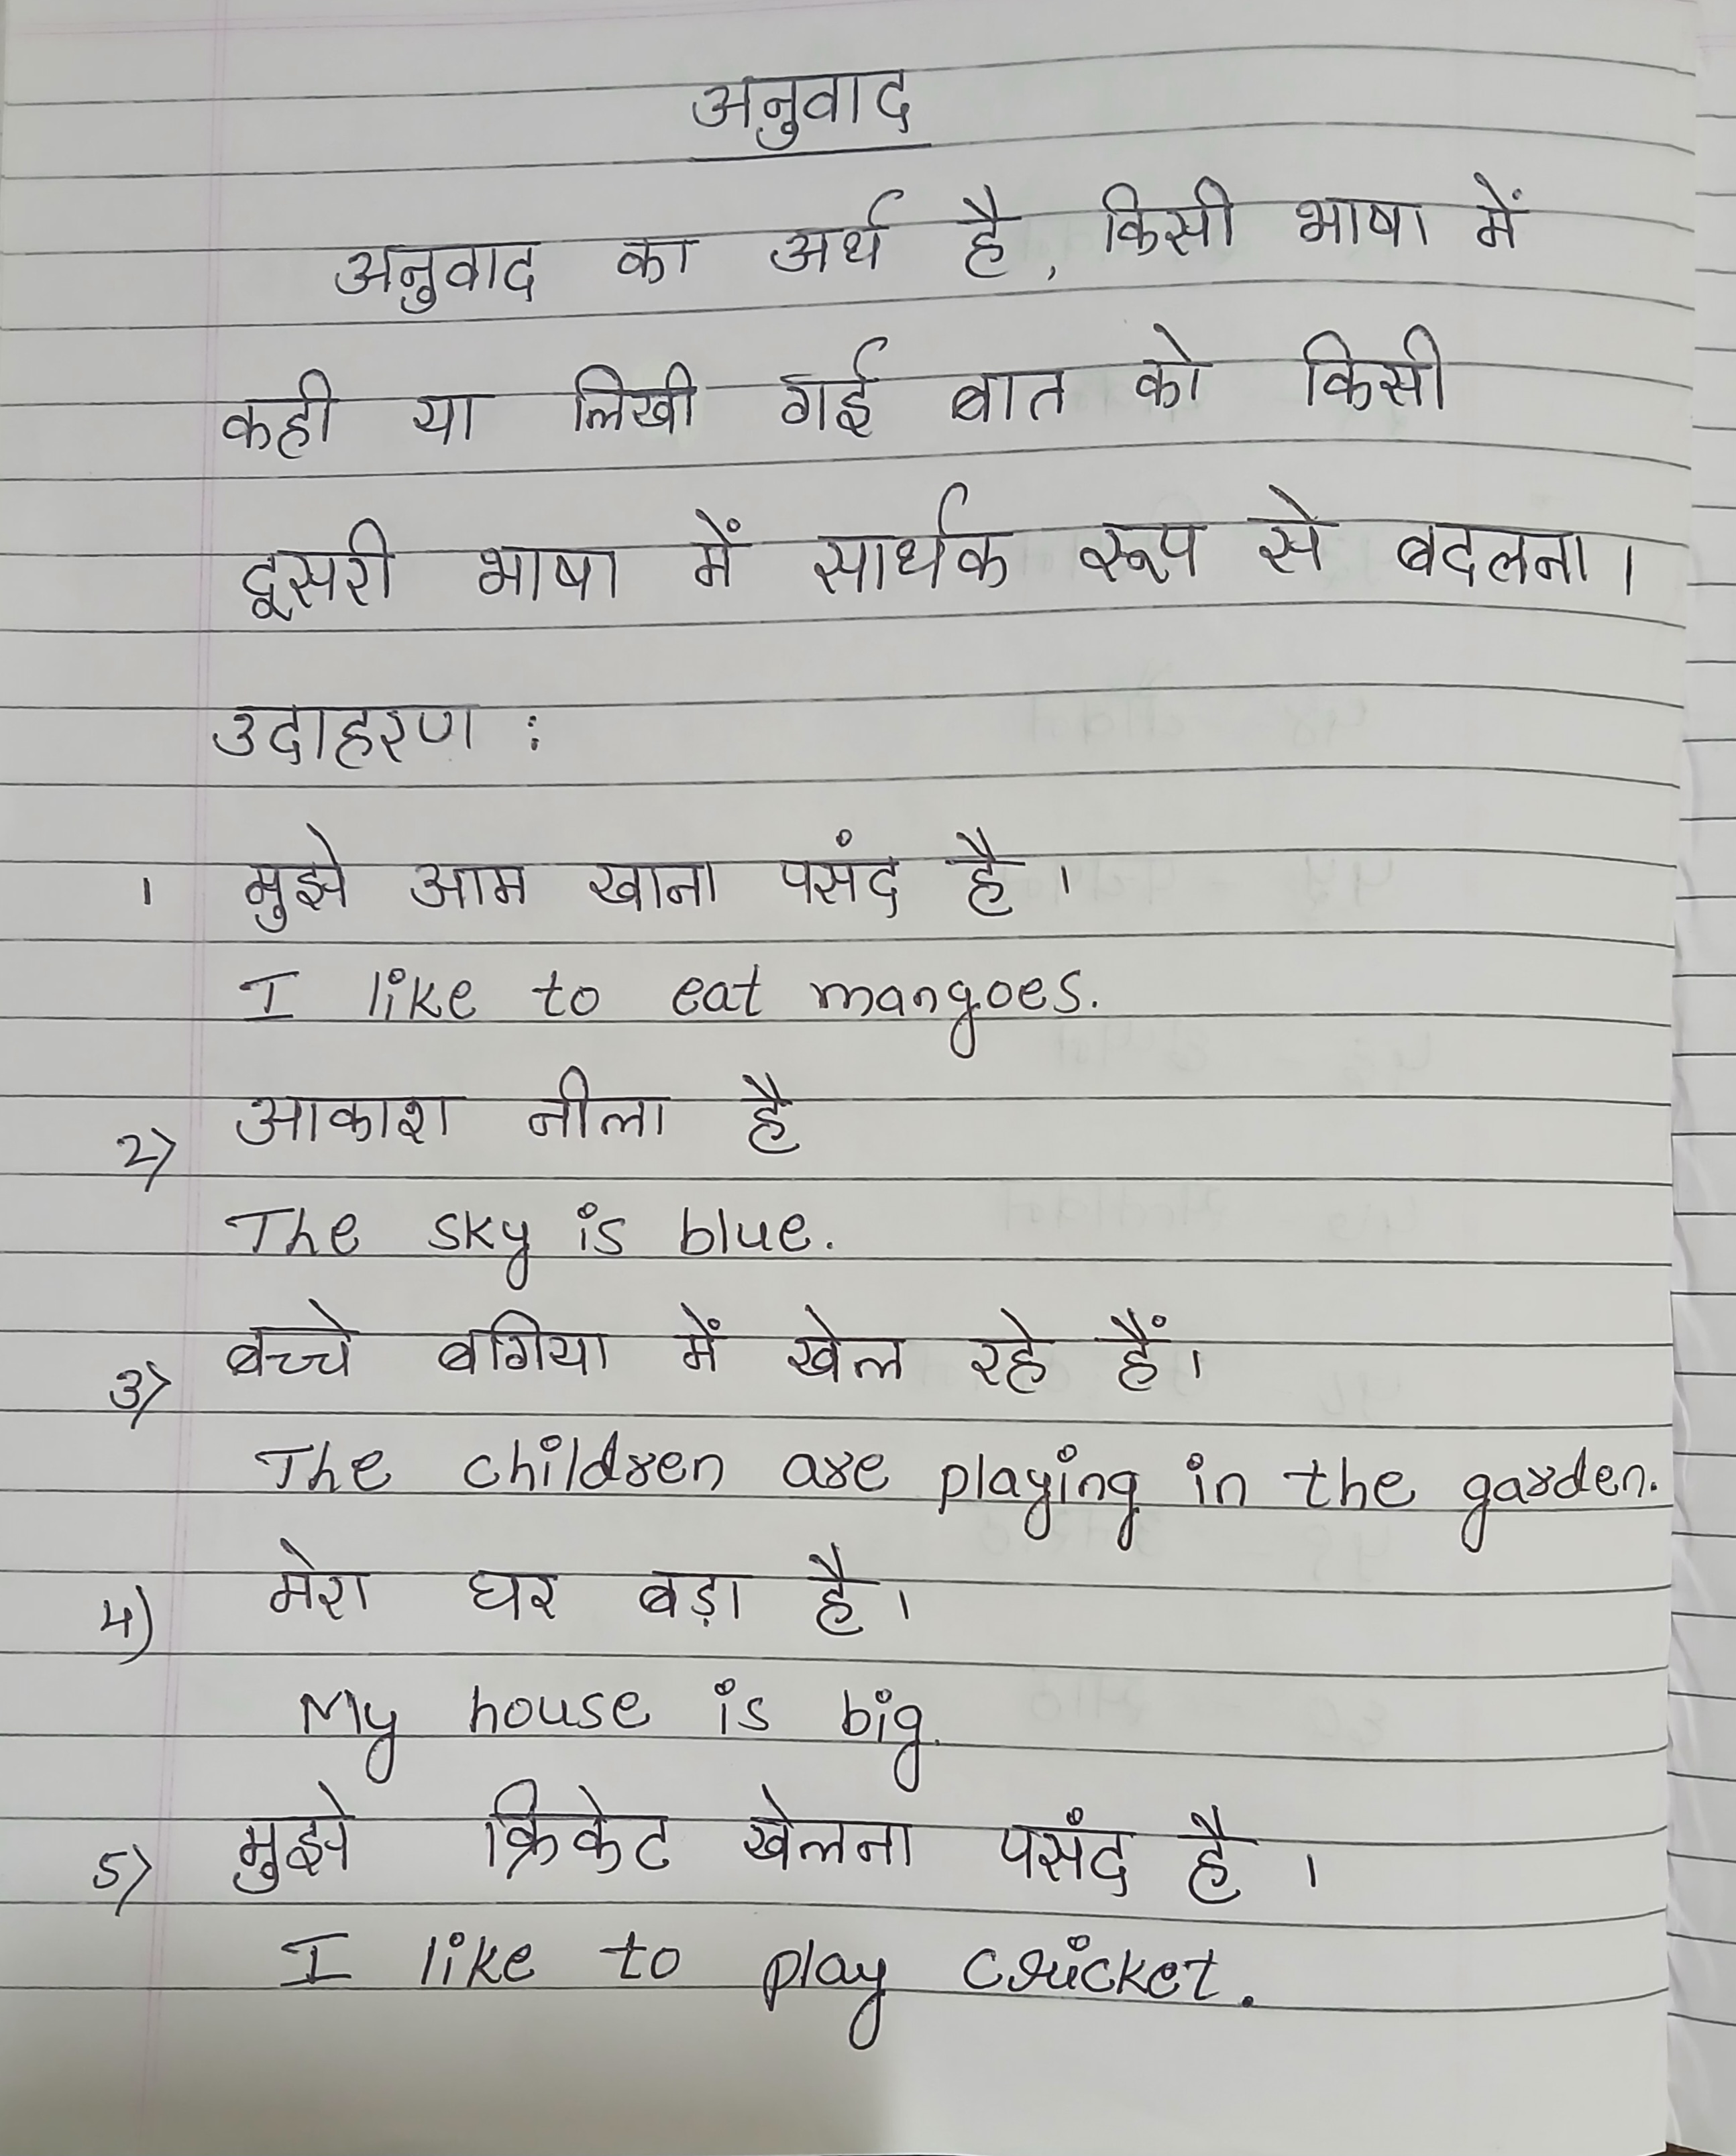 अनुवाद
अनुवाद का अर्थ है, किसी भाषा में
कही या लिखी गई बात को किसी
दूसरी भाषा में सार्थक रूप से बदलना।
उदाहरण :
1 मुझे आम खाना पसंद है।
I like to eat mangoes.
2) आकाश नीला है
The sky is blue.
3) बच्चे बगिया में खेल रहे हैं।
The children are playing in the garden.
4) मेरा घर बड़ा है।
My house is big.
5) मुझे क्रिकेट खेलना पसंद है।
I like to play cricket.